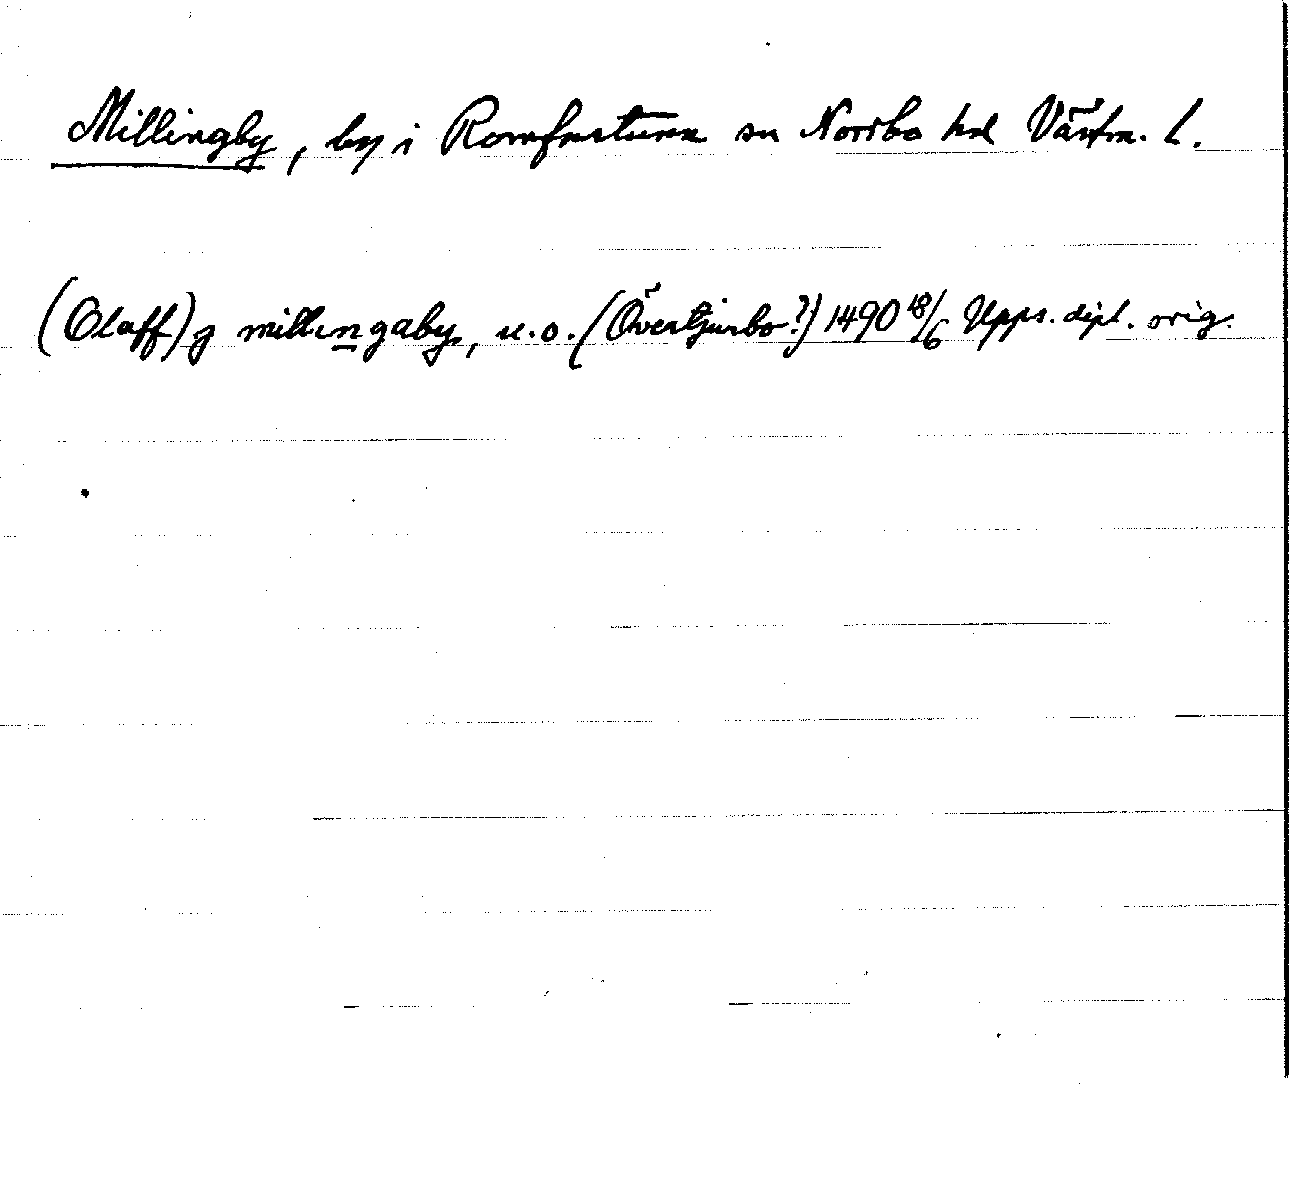 Millingby, by i Romfartuna sn Norrbo hd Västm. l.
(Olaff) j millingaby, u.o. (Övertjurbo?) 1490 18/6 Upps. dipl. orig.